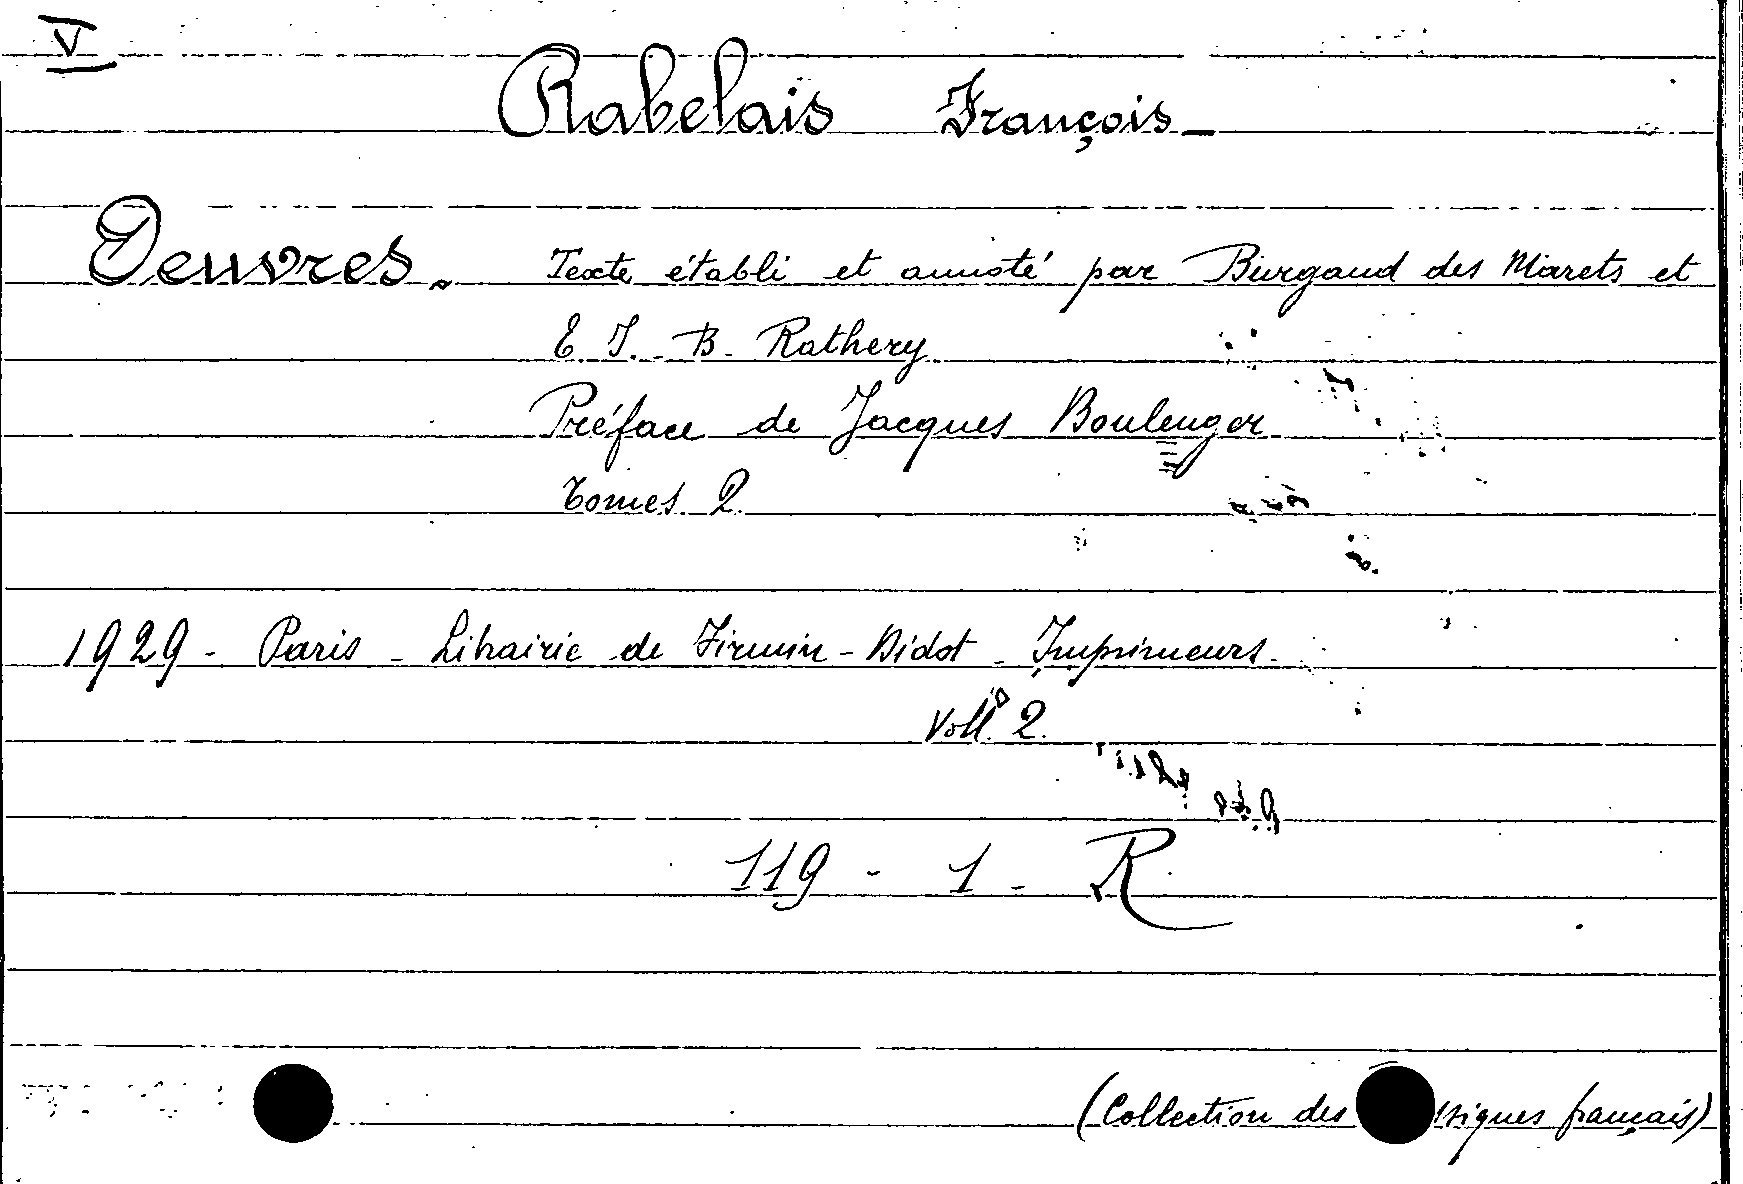 V
Rabelais François_
Oeuvres. Texte établi et annoté par Burgaud des Marets et
E J. B. Rathery
Préface de Jacques Boulenger
Tomes 2
1929 - Paris - Librairie de Firmin - Didot - Imprimeurs.
Voll. 2.
119 - 1 - R
(Collection des ssiques français)